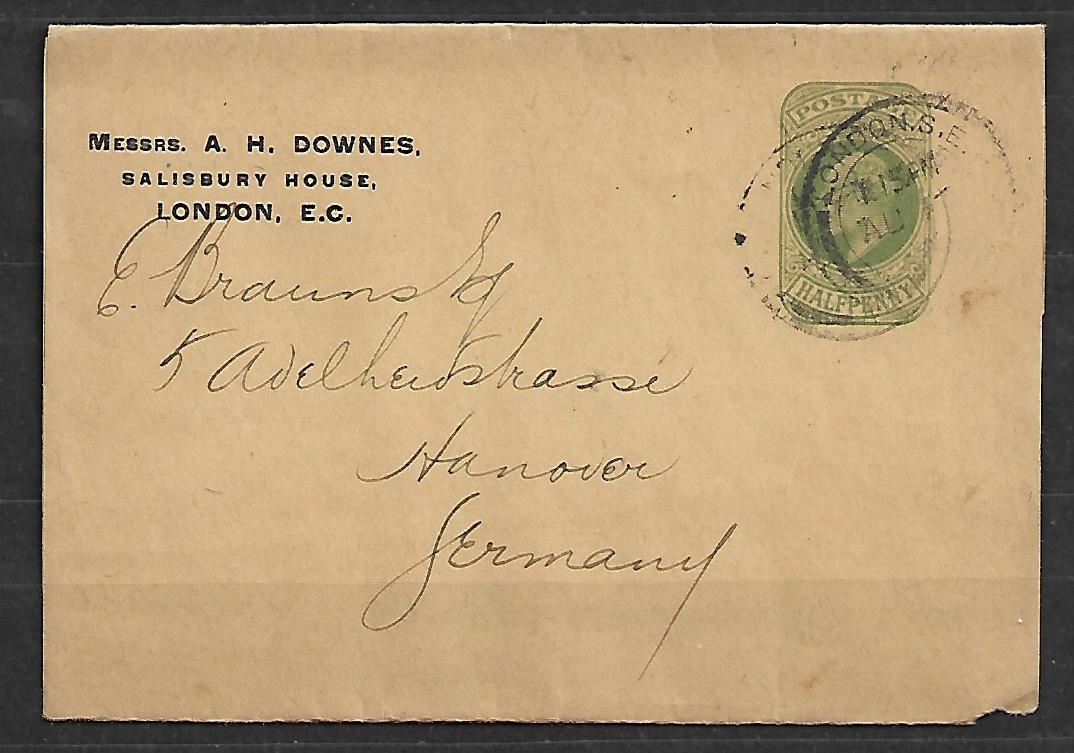 MESSRS. A. H. DOWNES,
SALISBURY HOUSE,
LONDON, E.C.
POSTA
LONDON. S.E.
AU
HALFPENNY
E. Brauns Esq
5 Adelheidstrasse
Hanover
Germany